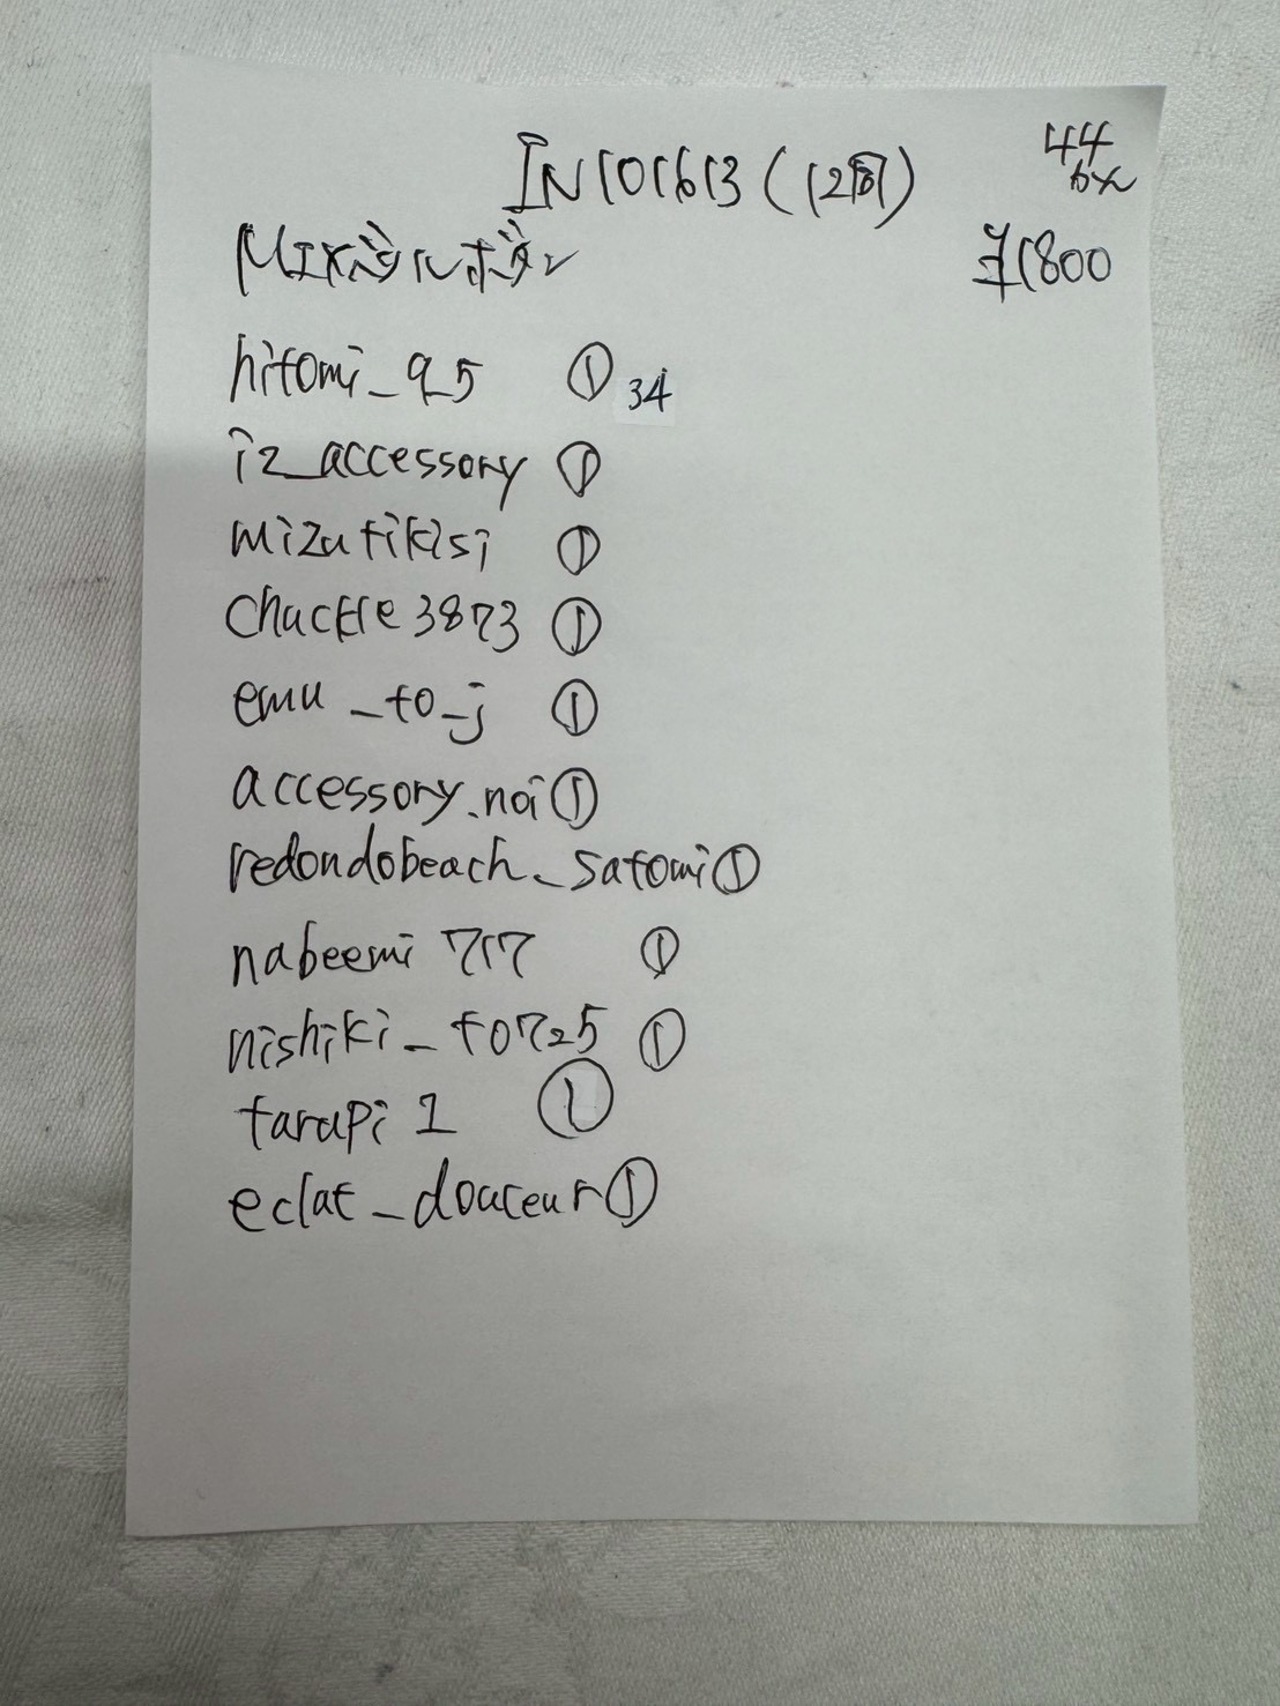 IN101613 (12回) 44
6x
MIXシルボタン ¥1800
hitomi_9_5 ① 34
iz_accessory ①
mizutikisi ①
chuckle3873 ①
emu_to_j ①
accessory.noi ①
redondobeach_satomi ①
nabeemi717 ①
nishiki_to725 ①
tarapi1 ①
eclat_douceur ①